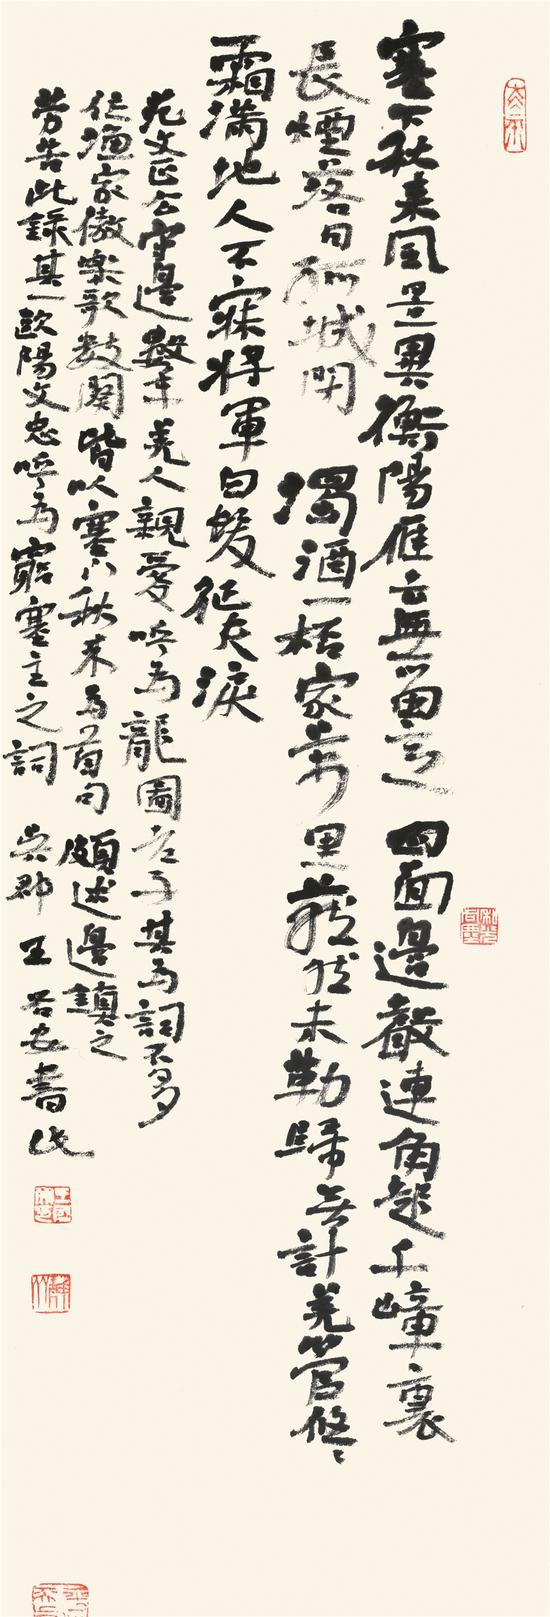 塞下秋来風景異衡陽雁去無留意 四面邊聲連角起千嶂裏
長煙落日孤城閉 濁酒一杯家萬里燕然未勒歸無計羌管悠々
霜滿地人不寐將軍白髮征夫淚
范文正公守邊數年羌人親愛呼為龍圖老子其為詞不多
作漁家傲樂歌數闋皆以塞下秋来為首句頗述邊鎮之
勞苦此錄其一歐陽文忠呼為窮塞主之詞 吳郡王 安書